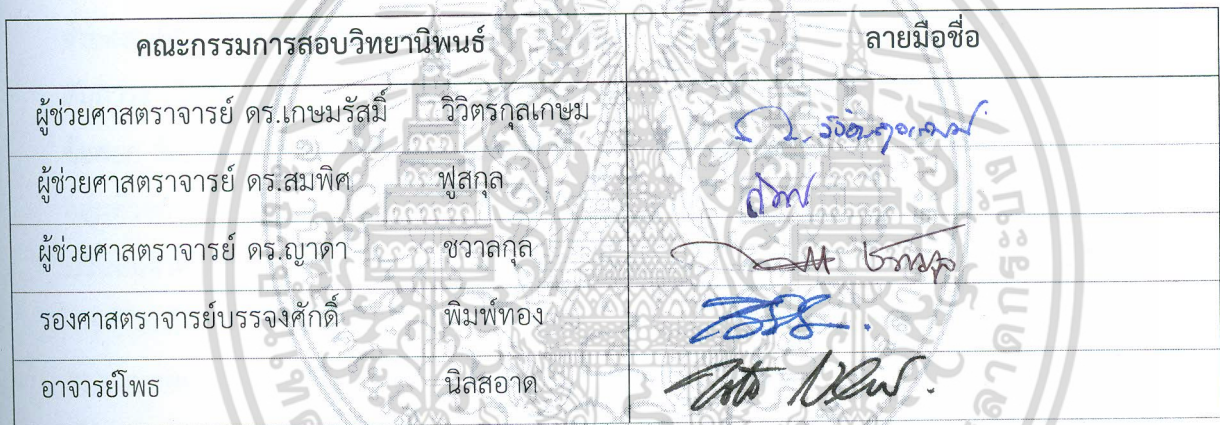 คณะกรรมการสอบวิทยานิพนธ์ ลายมือชื่อ
ผู้ช่วยศาสตราจารย์ ดร.เกษมรัสมิ์ วิวิตรกุลเกษม
ผู้ช่วยศาสตราจารย์ ดร.สมพิศ ฟูสกุล
ผู้ช่วยศาสตราจารย์ ดร.ญาดา ชวาลกุล
รองศาสตราจารย์บรรจงศักดิ์ พิมพ์ทอง
อาจารย์โพธ นิลสอาด